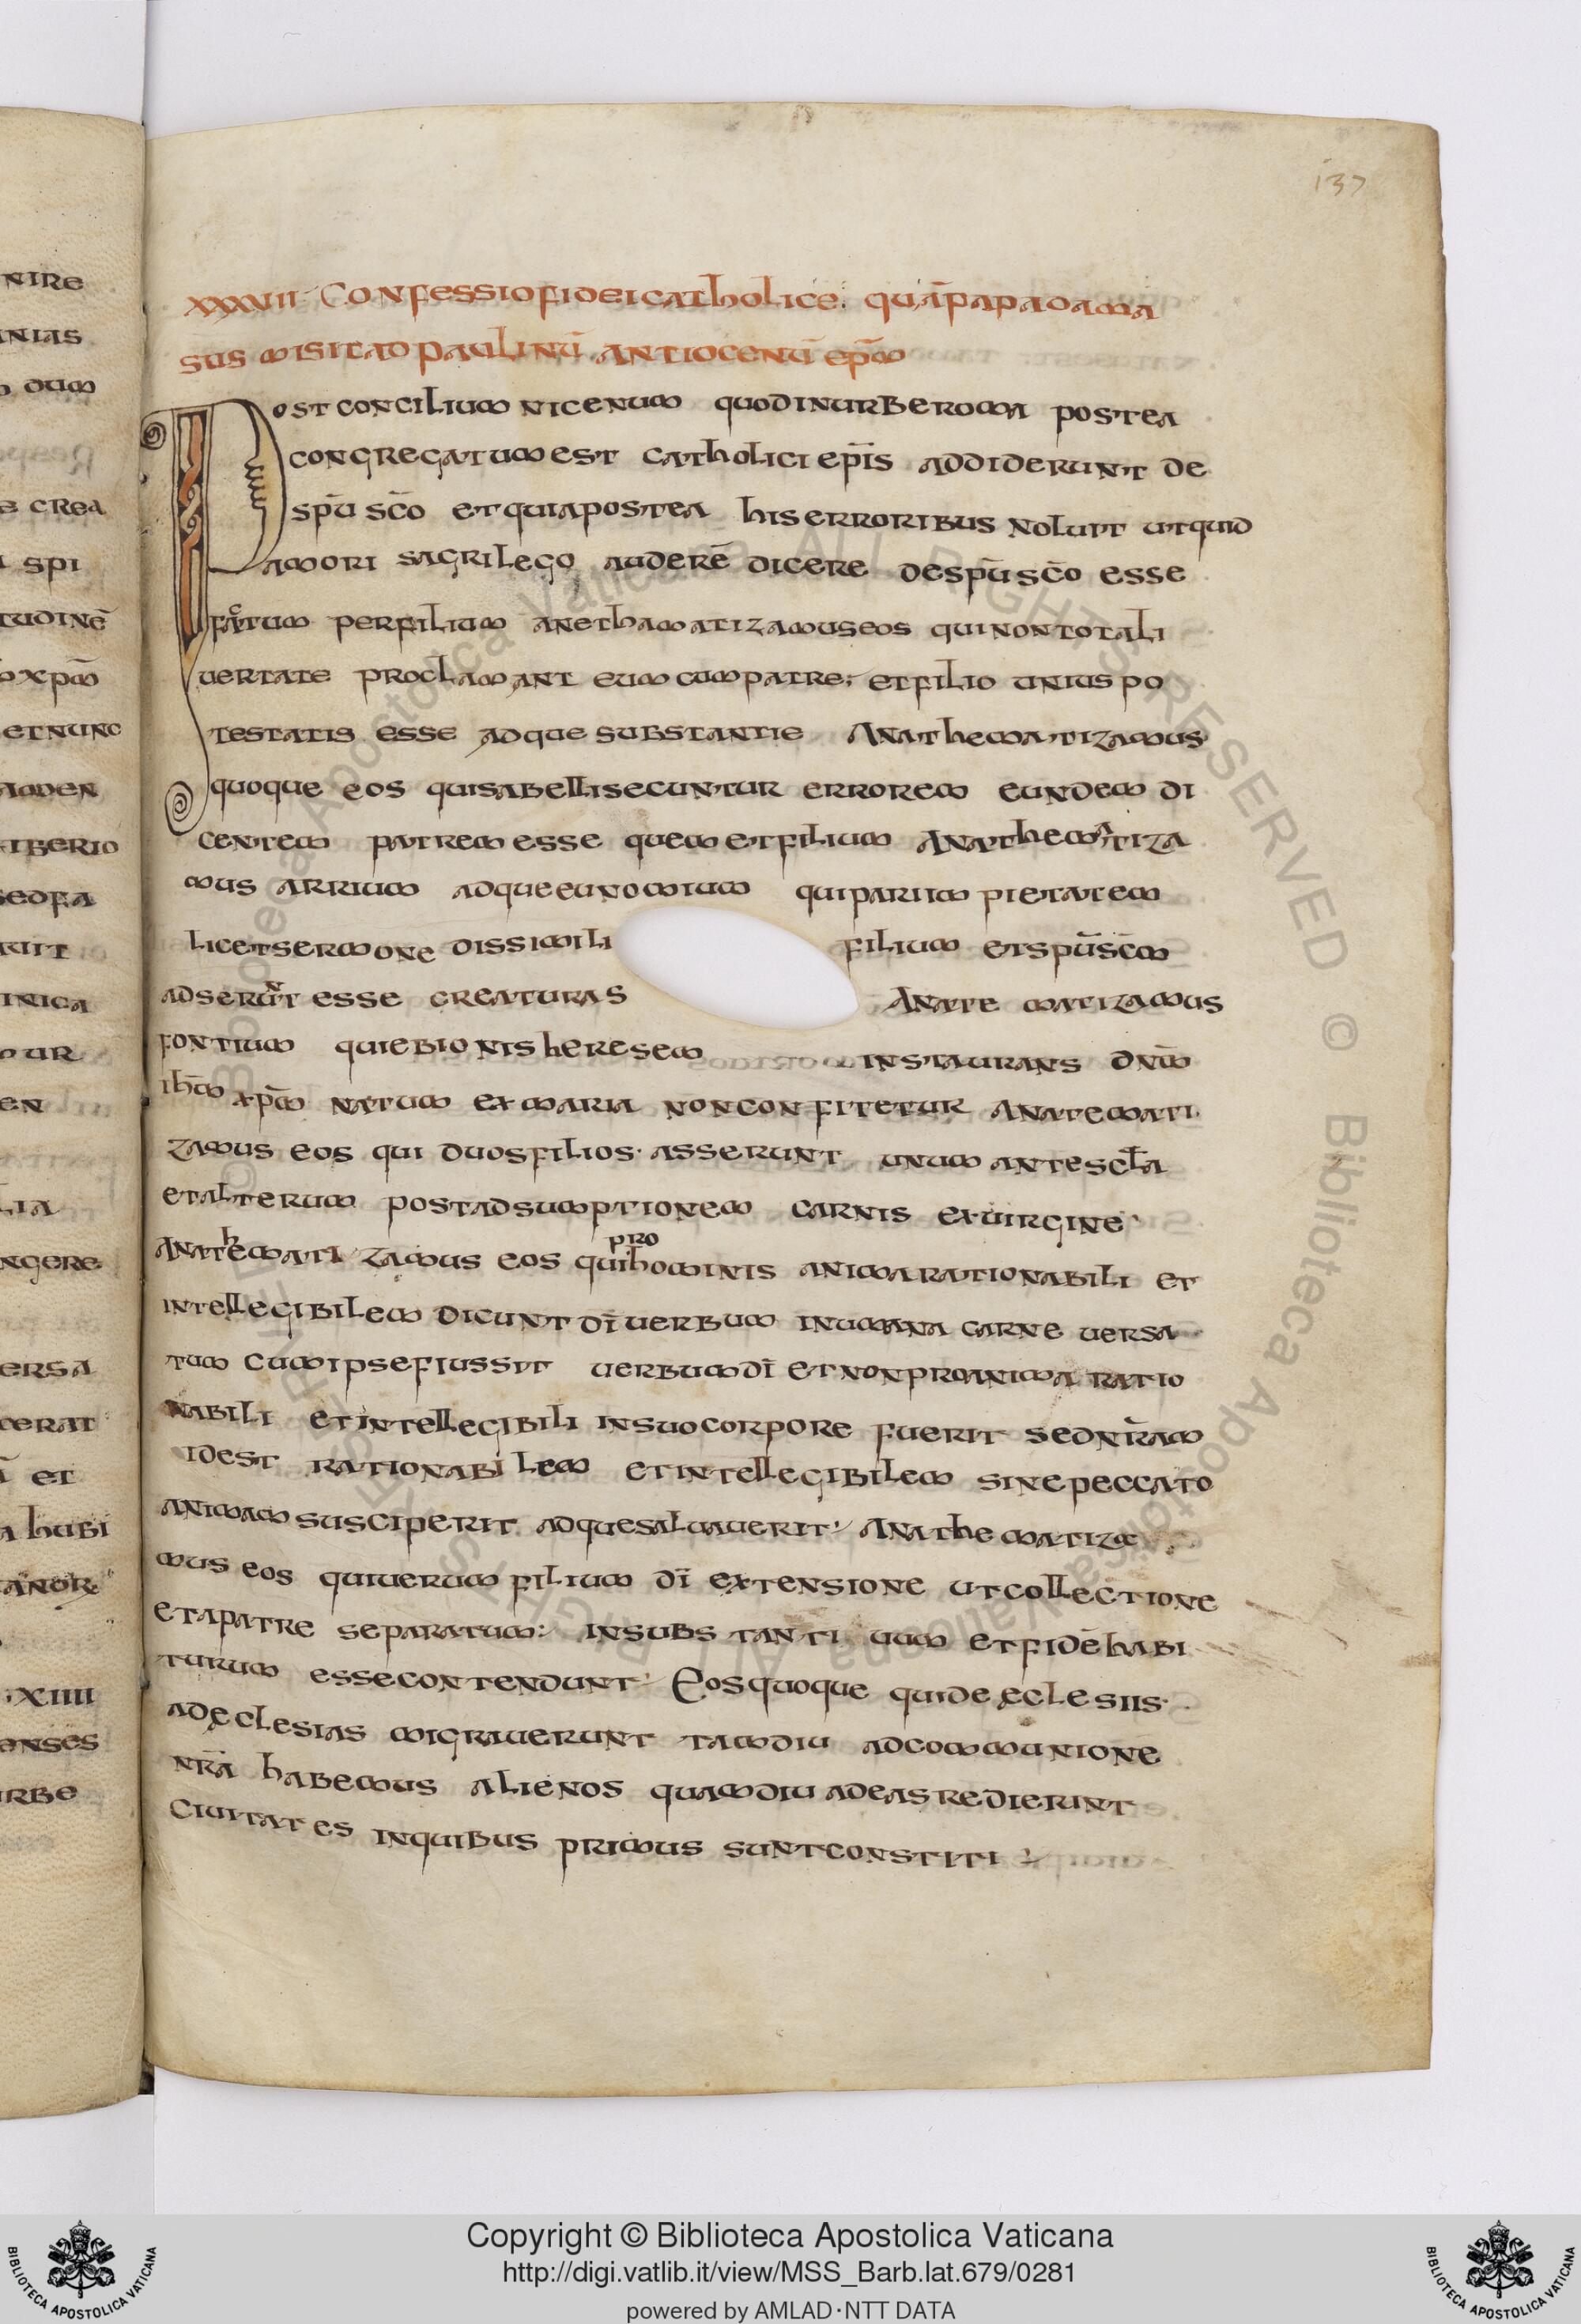 137
nire
nias
dum
e crea
spi
tudinē
xpm̄
et nunc
amden
iberio
sed fa
ruit
inica
ur
en
lia
ngere
ersa
cerat
et
a hubi
anor
xiiii
enses
urbe
xxxvii Confessio fidei catholice. quā papa dama
sus misit ad paulinū antiocenū ep̄m
Post concilium nicenum quod in urbe roma postea
congregatum est catholici ep̄is addiderunt de
sp̄u sc̄o et quia postea his erroribus noluit ut quid
amori sacrilego auderē dicere de sp̄u sc̄o esse
factum per filium anethamatizamus eos qui non tota li
uertate proclamant eum cum patre; et filio unius po
testatis esse adque substantie Anathematizamus
quoque eos qui sabelli secuntur errorem eundem di
centem patrem esse quem et filium Anathematiza
mus arrium adque eunomium qui pari im pietatem
licet sermone dissimili filium et sp̄um sc̄m
adserunt esse creaturas Anate matizamus
fontium qui ebionis heresem instaurans dn̄m
ih̄m xp̄m natum ex maria non confitetur Anatemati
zamus eos qui duos filios asserunt unum ante sc̄la
et alterum post adsumptionem carnis ex uirgine
Anathemati zamus eos qui pro hominis anima rationabili et
intellegibilem dicunt dī uerbum in umana carne uersa
tum cum ipse fiussit uerbum dī et non pro anima ratio
nabili et intellegibili in suo corpore fuerit sed nr̄am
id est rationabilem et intellegibilem sine peccato
animam susciperit adque saluauerit; Anathe matiza
mus eos qui uerum filium dī extensione ut collectione
et a patre separatum: insubs tanti uum et fidē habi
turum esse contendunt; Eos quoque qui de eclesiis
ad eclesias migrauerunt tamdiu ad communione
nr̄a habemus alienos quamdiu ad eas redierint
Ciuitates in quibus primus sunt constiti
Copyright © Biblioteca Apostolica Vaticana
http://digi.vatlib.it/view/MSS_Barb.lat.679/0281
powered by AMLAD·NTT DATA
BIBLIOTECA APOSTOLICA VATICANA
BIBLIOTECA APOSTOLICA VATICANA